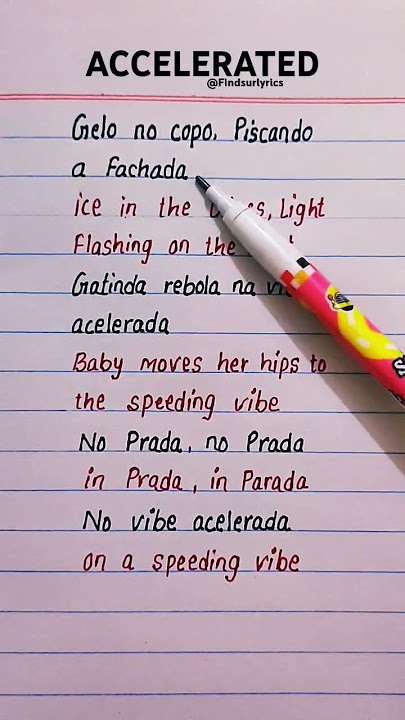 ACCELERATED
@Findsurlyrics
Gelo no copo, Piscando
a Fachada
ice in the s, Light
Flashing on the
Gatinda rebola na
acelerada
Baby moves her hips to
the speeding vibe
No Prada, no Prada
in Prada, in Parada
No vibe acelerada
on a speeding vibe